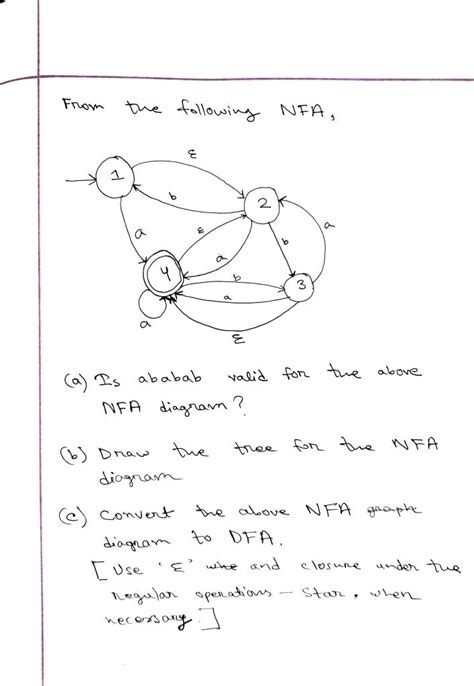 From the following NFA,
ε
1
b
2
a
ε
a
b
a
4
b
a
3
a
ε
(a) Is ababab valid for the above
NFA diagram?
(b) Draw the tree for the NFA
diagram
(c) Convert the above NFA
diagram to DFA.
[Use 'ε' and closure under the
regular operations - Star, when
necessary.]